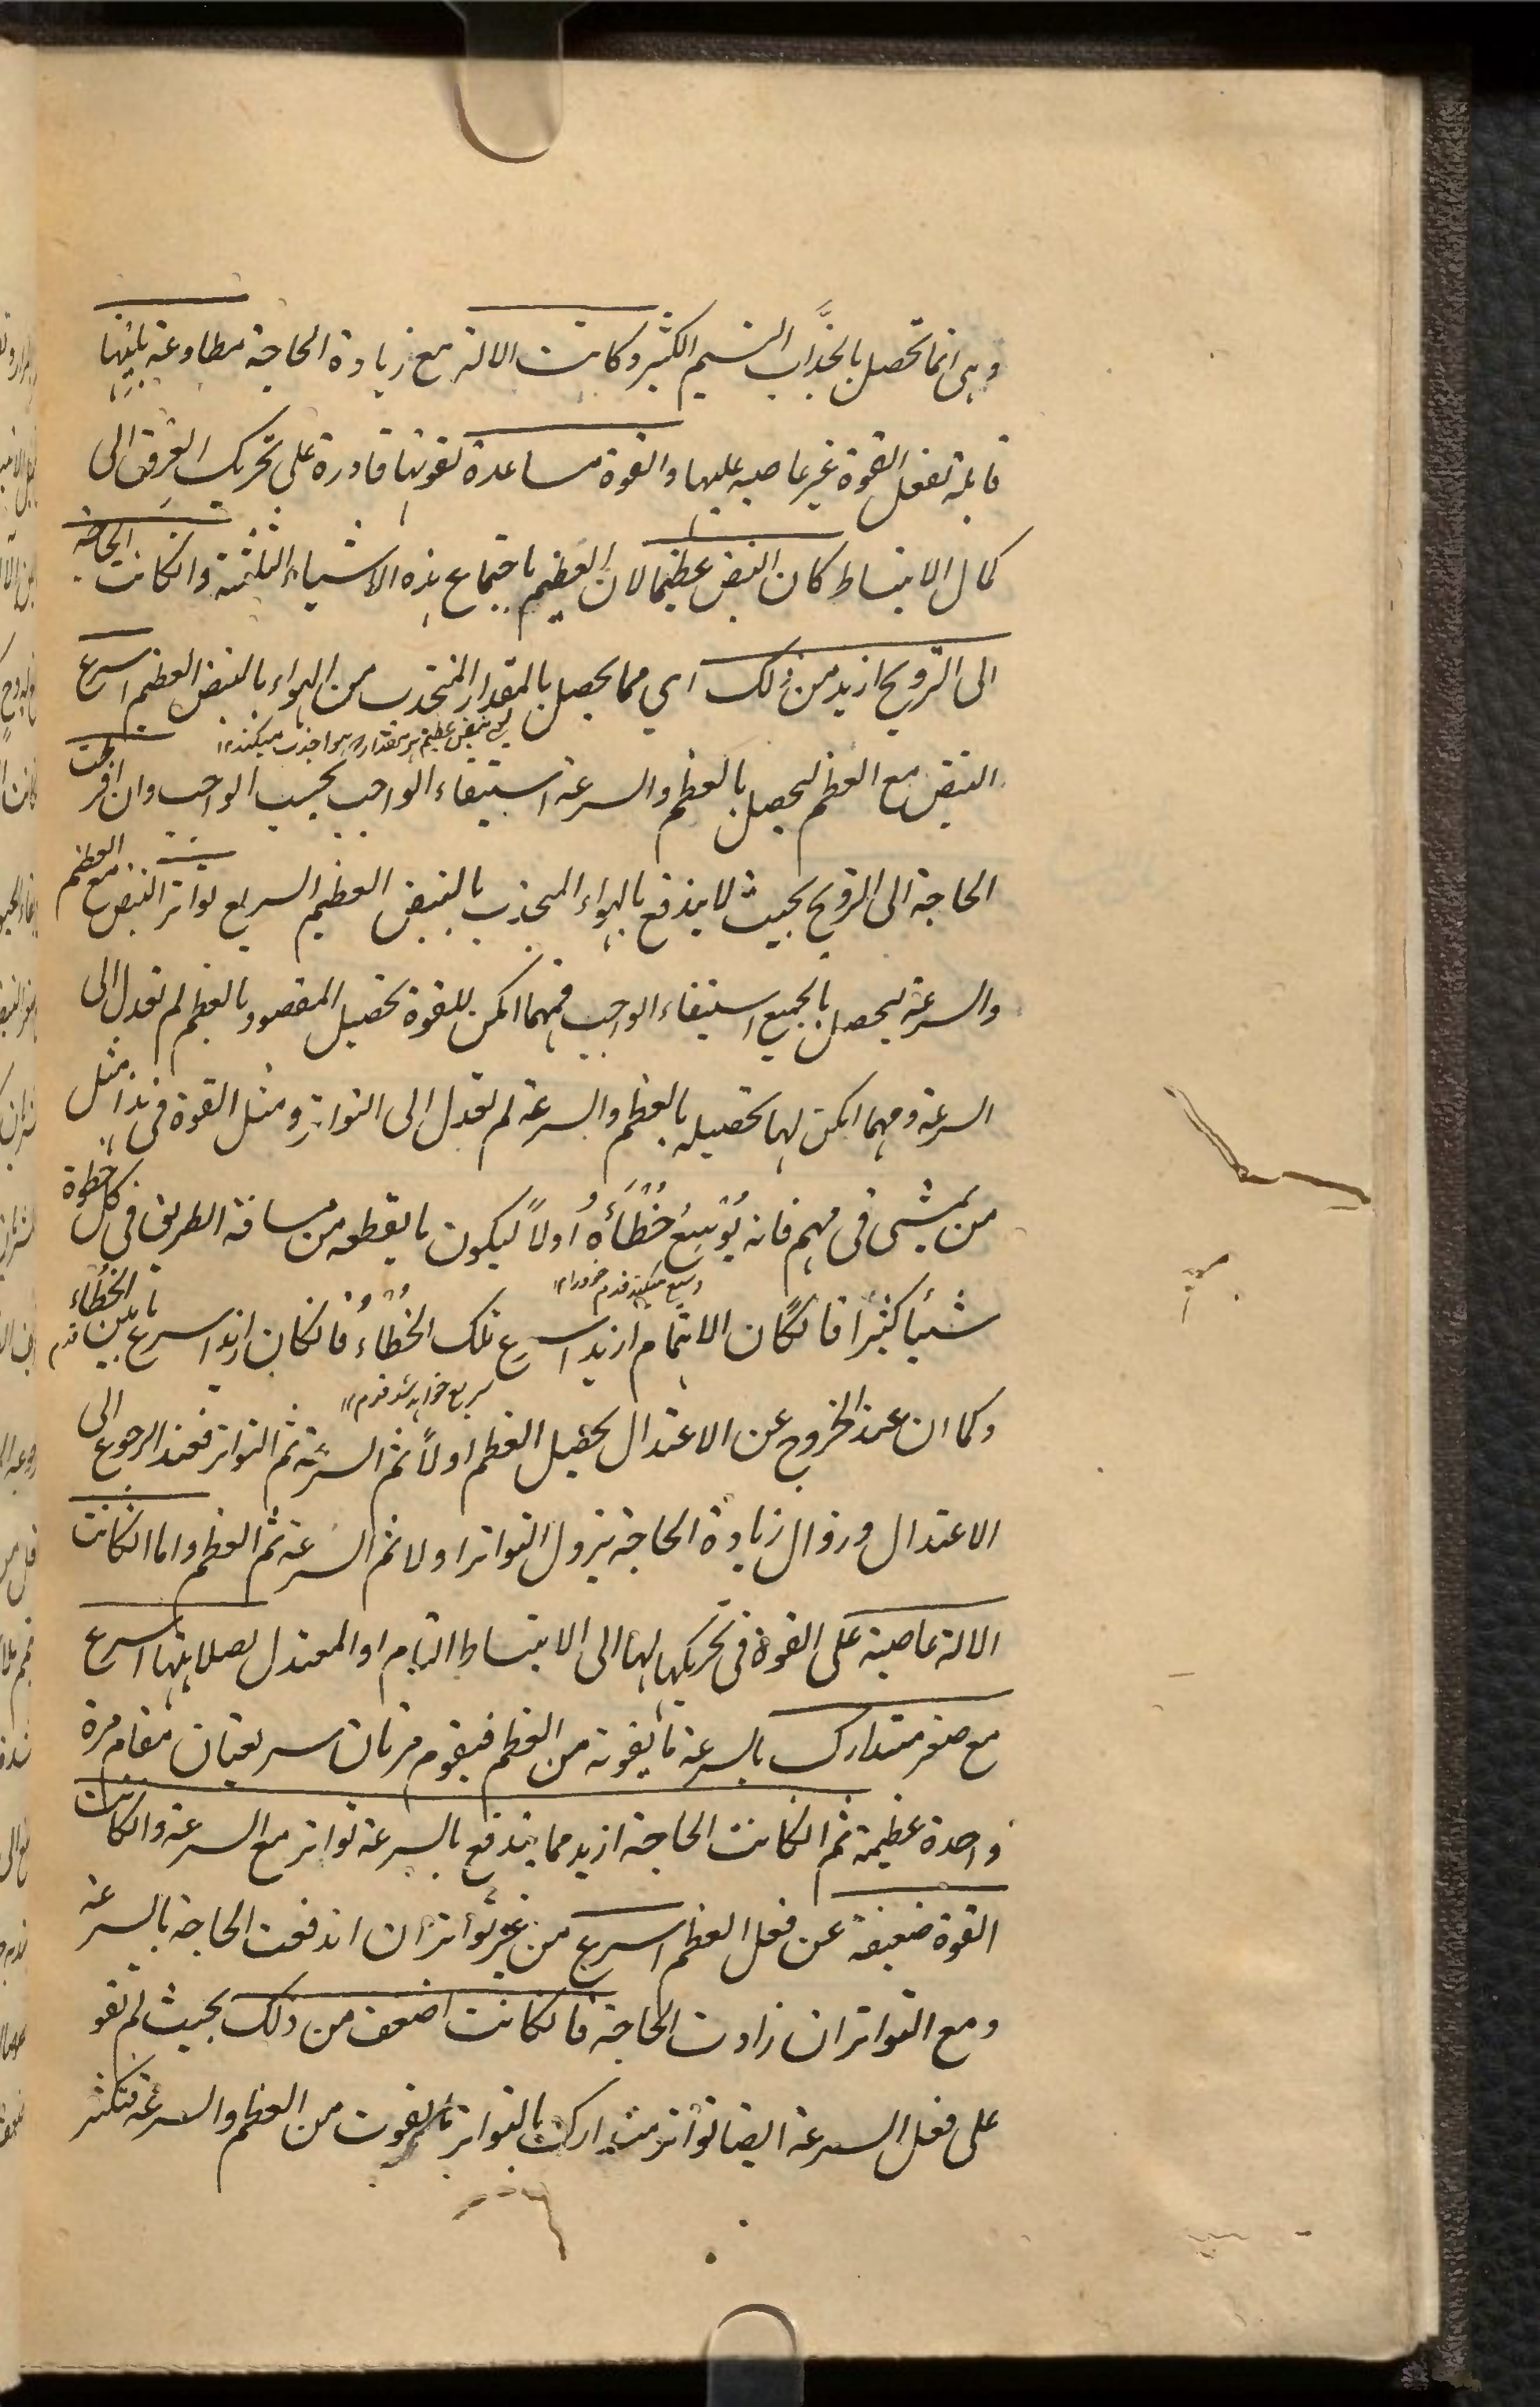 وهى انما تحصل بانجذاب النسيم الكثير وكانت الالة مع زيادة الحاجة مطاوعة بلينها
قابلة لفعل القوة غير عاصية عليها والقوة مساعدة لقوتها قادرة على تحريك العرق الى
كمال الانبساط كان النبض عظيما لان العظيم باجتماع هذه الاشياء الثلثة وانكانت الحاجة
الى الترويح ازيد من ذلك اى مما يحصل بالمقدار المنجذب من الهواء بالنبض العظيم اسرع
نبض عظيم هر مقدار هوا جذب ميكند
النبض مع العظم ليحصل بالعظم والسرعة استيفاء الواجب بحسب الواجب وان افرطت
الحاجة الى الترويح بحيث لا يندفع بالهواء المنجذب بالنبض العظيم السريع تواتر النبض مع العظم
والسرعة ليحصل بالجميع استيفاء الواجب فمهما امكن للقوة تحصيل المقصود بالعظم لم تعدل الى
السرعة ومهما امكن لها تحصيله بالعظم والسرعة لم تعدل الى التواتر ومثل القوة فى هذا مثل
من يمشى فى مهم فانه يُوَسِّعُ خُطَاءَهُ اولاً ليكون ما يقطعه من مسافة الطريق فى كل خطوة
وسيع ميكند قدم خود را
شيأ كثيرا فانكان الاهتمام ازيد اسرع تلك الخُطَاءُ فانكان ازيد اسرع ما بين الخُطَاء
قدم
سريع خواهد شد قدم
وكما ان عند الخروج عن الاعتدال يحصل العظم اولاً ثم السرعة ثم التواتر فعند الرجوع الى
الاعتدال وزوال زيادة الحاجة يزول التواتر اولا ثم السرعة ثم العظم واما انكانت
الالة عاصية على القوة فى تحريكها لها الى الانبساط التام او المعتدل لصلابتها اسرع
مع صغر متدارك بالسرعة ما يفوته من العظم فيقوم مرتان سريعتان مقام مرة
واحدة عظيمة ثم انكانت الحاجة ازيد مما يندفع بالسرعة تواتر مع السرعة وانكانت
القوة ضعيفة عن فعل العظم اسرع من غير تواتر ان اندفعت الحاجة بالسرعة
ومع التواتر ان زادت الحاجة فانكانت اضعف من ذلك بحيث لم تقو
على فعل السرعة ايضا تواتر متدارك بالتواتر ما يفوت من العظم والسرعة فتكثر